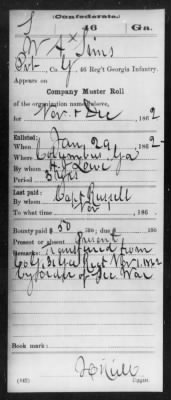 (Confederate.)
S 46 Ga.
W A Sims
Pvt, Co. G, 46 Reg't Georgia Infantry.
Appears on
Company Muster Roll
of the organization named above,
for Nov & Dec, 1862
Enlisted:
When Jan 29, 1862
Where Columbus, Ga
By whom
Period 3 yrs
Last paid:
By whom Capt Russell
To what time Nov 1, 186 .
Bounty paid $ 50 100; due $ 100
Present or absent Present
Remarks: Transferred from
Co G Regt Nov 1, 1862
by order of Sec War
Book mark:
(642) Copyist.